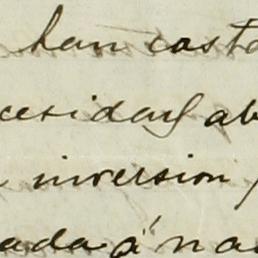 han costa
cesidad ab
inversion
ada á na